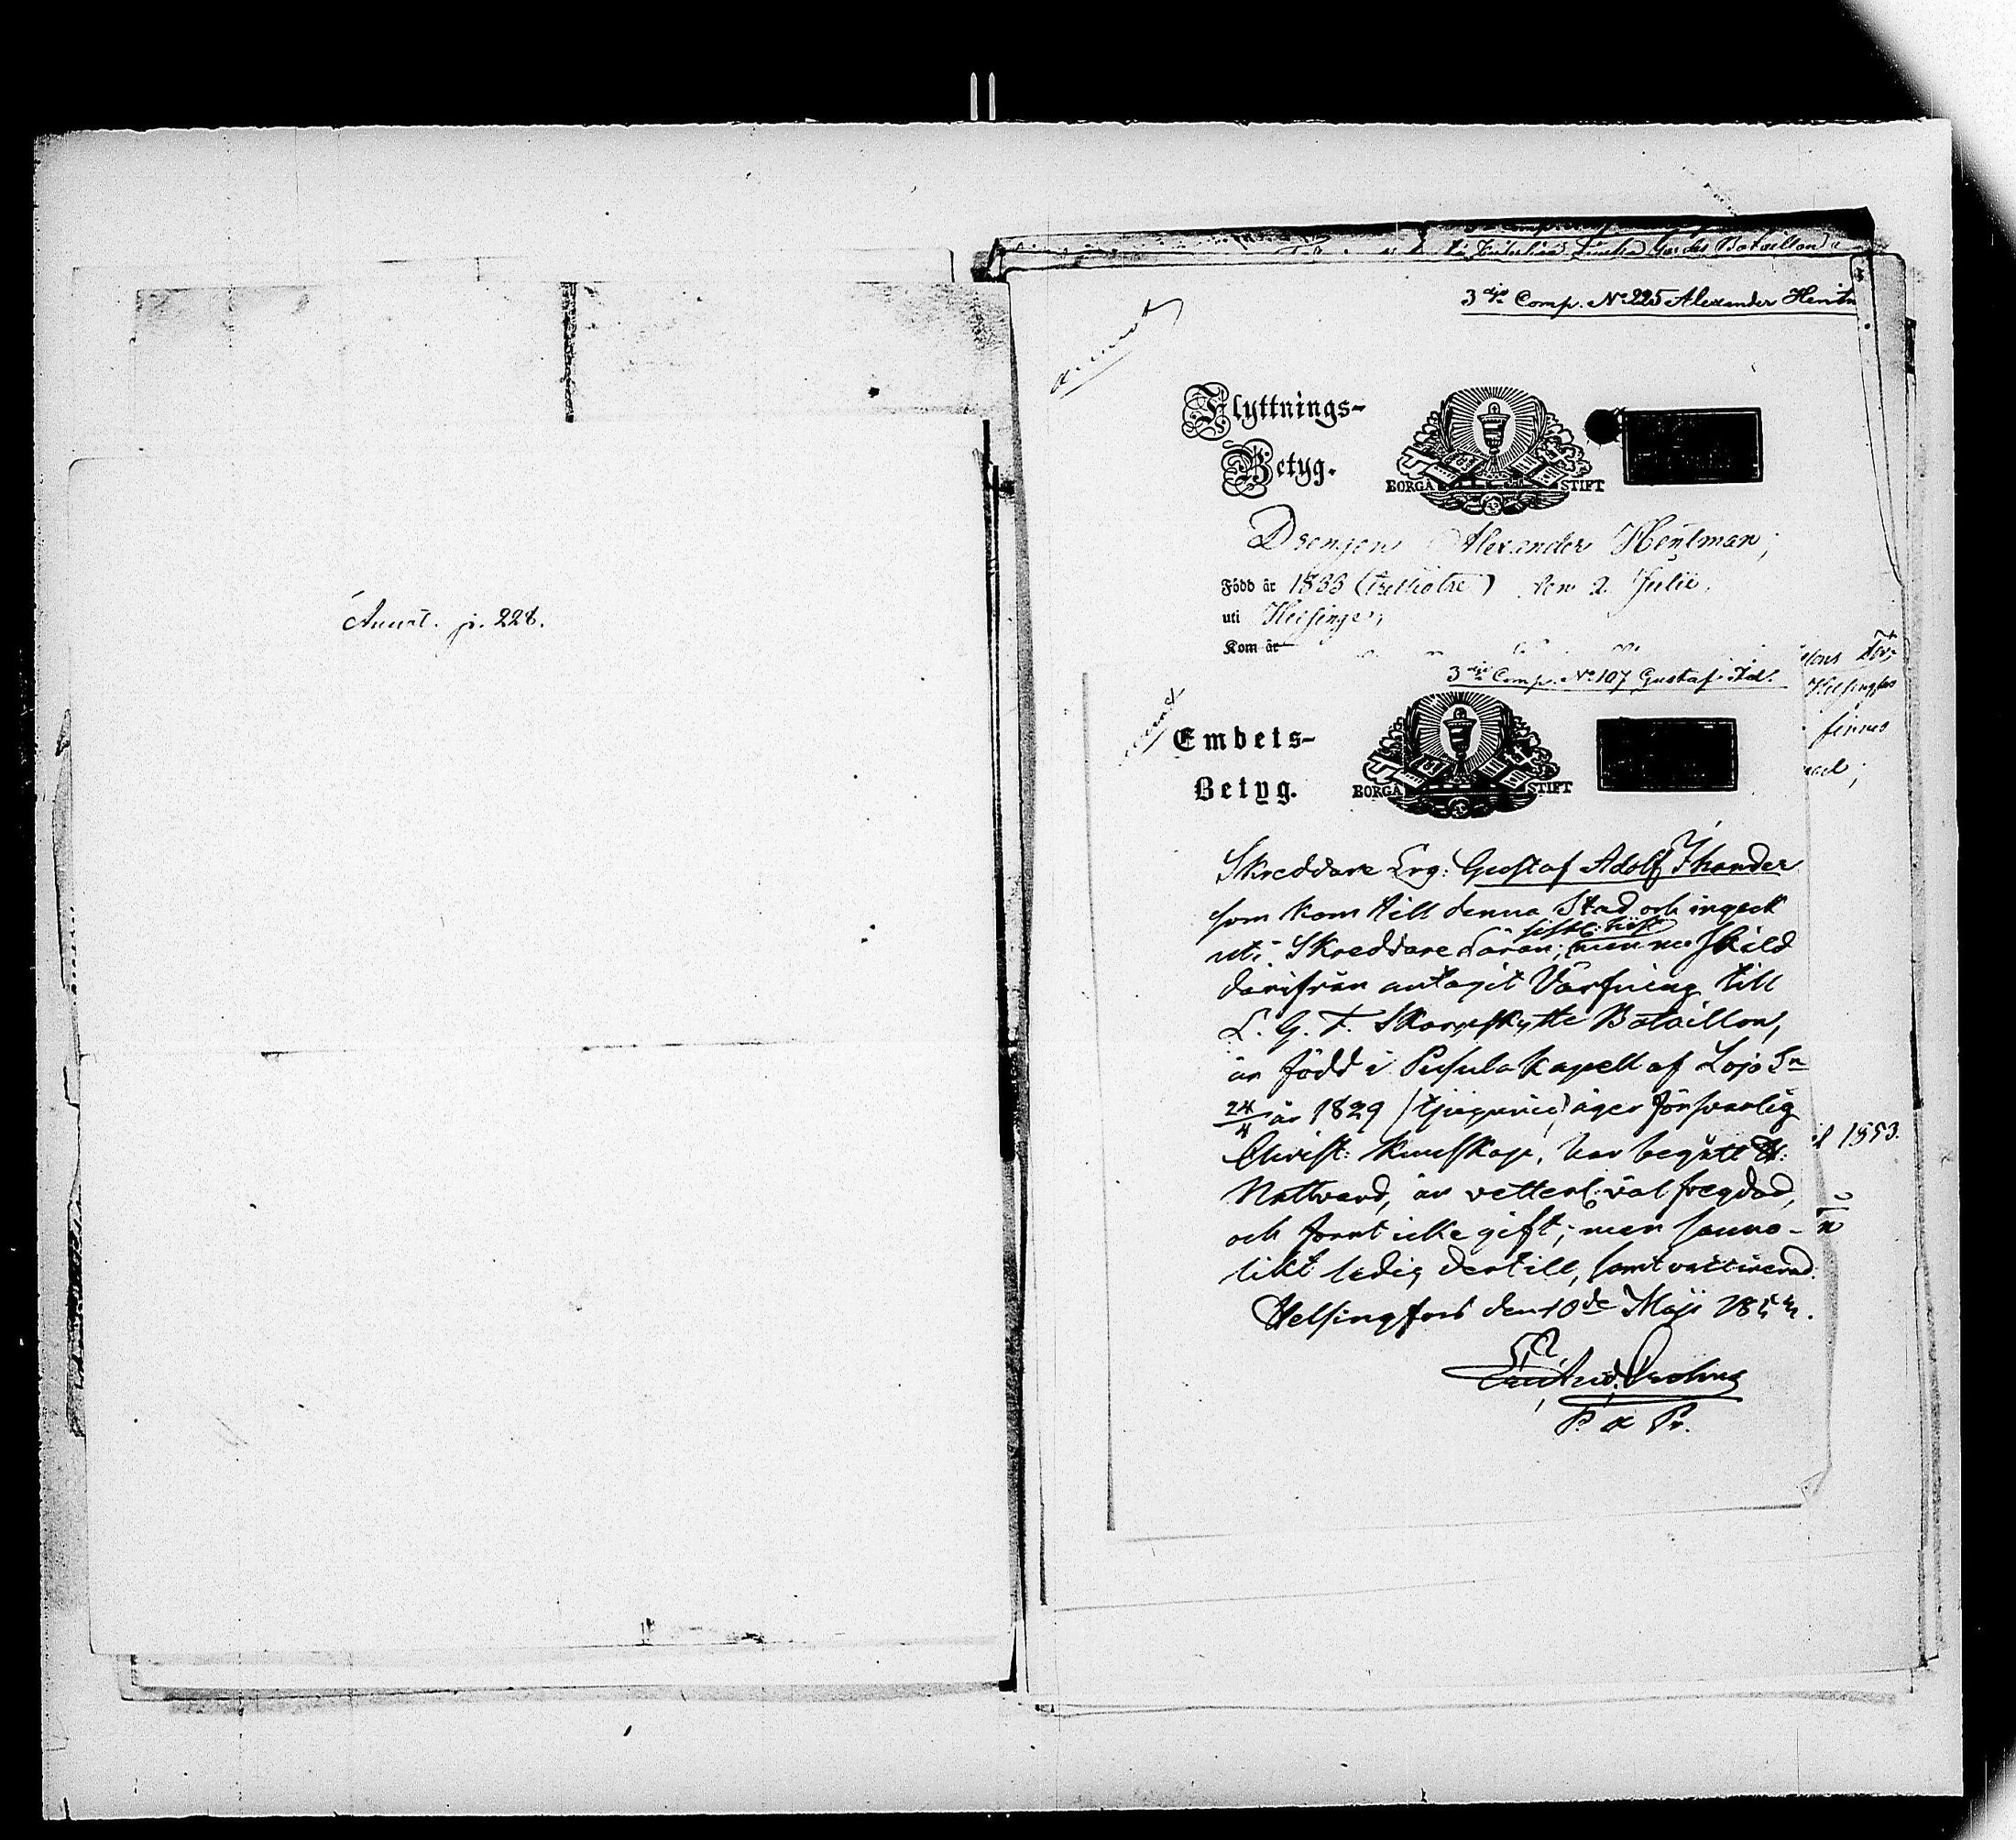 Annot. p. 228.
3dje Comp. No 225 Alexander Hentm
annot
Flyttnings-
Betyg.
BORGÅ STIFT
Drengen Alexander Hentman;
Född år 1833 (trettiotre) den 2. Julii,
uti Helsinge,
Kom år
3dje Comp. No 107 Gustaf Id.
Embets-
Betyg.
BORGÅ STIFT
Helsingfors
finnes
Skreddare Lrg: Gustaf Adolf Ikonder
som kom till denna Stad och ingeck
uti Skreddare Läran; men nu skild
därifrån antagit Värfning till
L. G. F. Skarpskytte Bataillon,
är född i Pusula Kapell af Lojo Sn
24/4 år 1829 (tjugunie) äger försvarlig
Christ: Kunskap, har begått H:
Nattvard, är vetterl: väl fregdad,
och förut icke gift; men sanno-
likt ledig dertill, samt vaccinerad.
Helsingfors den 10de Maji 1853.
P. a Pr.
1853.